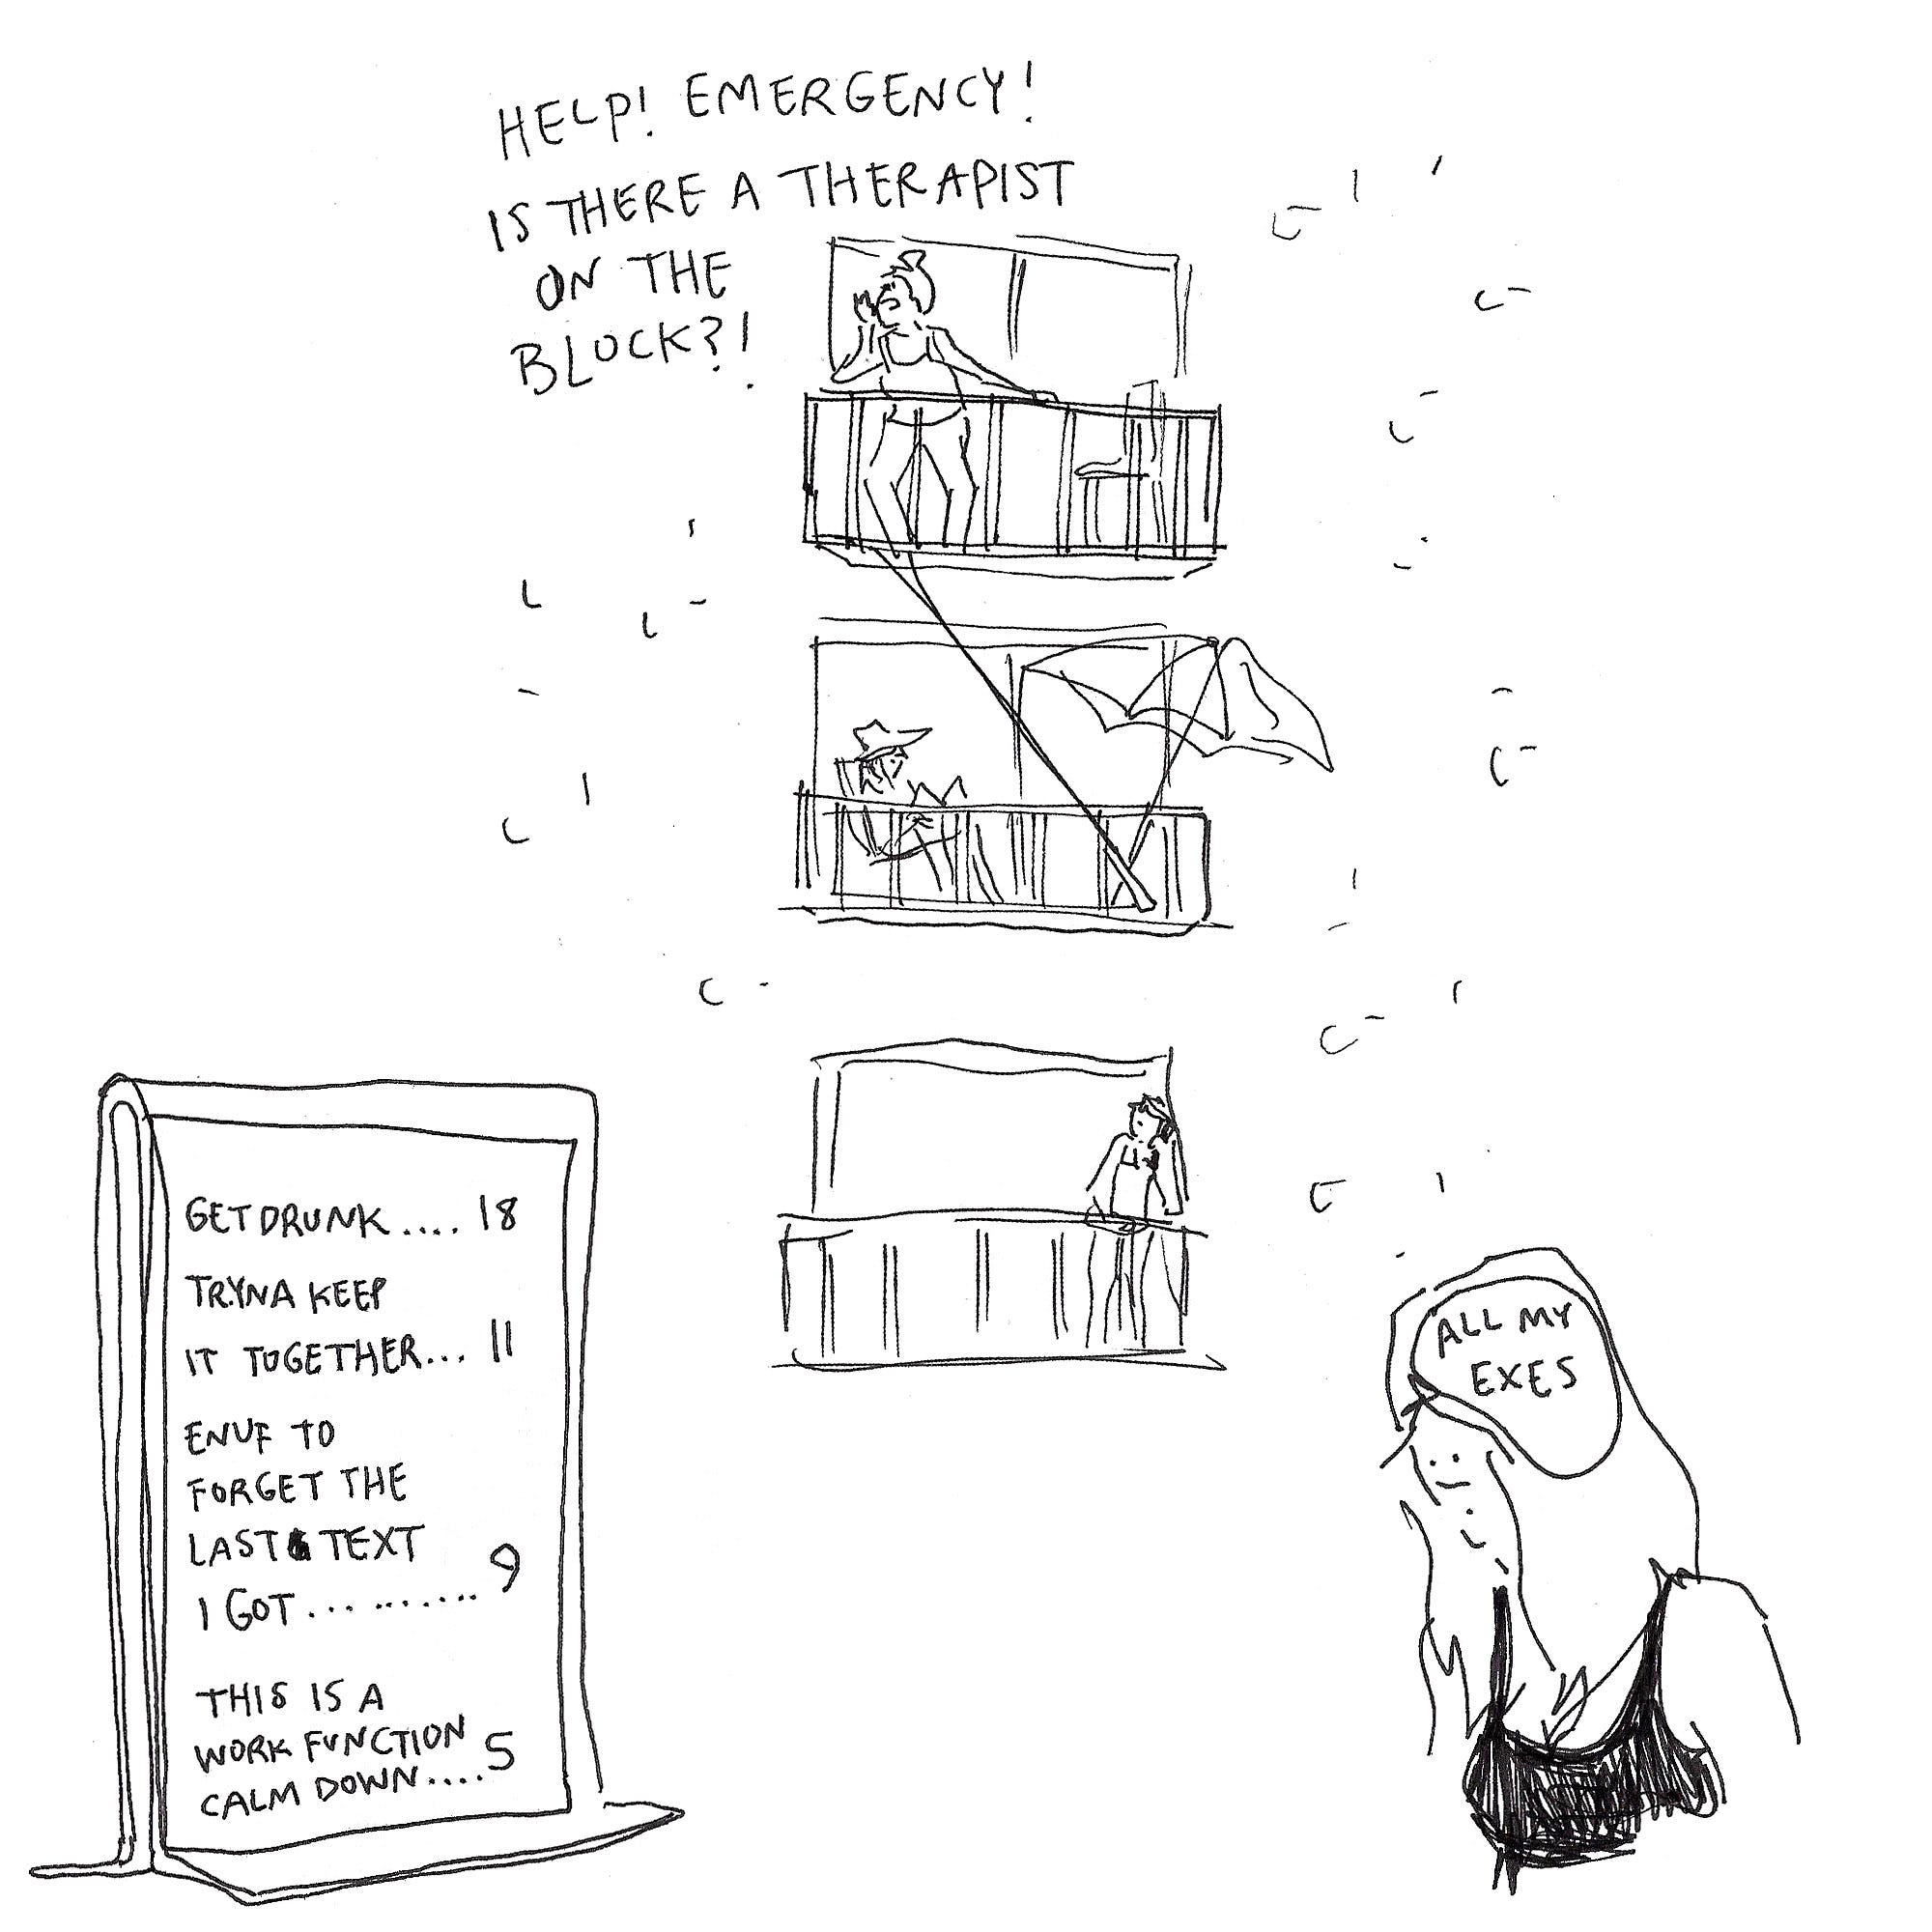 HELP! EMERGENCY!
IS THERE A THERAPIST
ON THE
BLOCK?!
GET DRUNK.... 18
TRYNA KEEP
IT TOGETHER... 11
ENUF TO
FORGET THE
LAST TEXT
I GOT.......... 9
THIS IS A
WORK FUNCTION
CALM DOWN....5
ALL MY
EXES